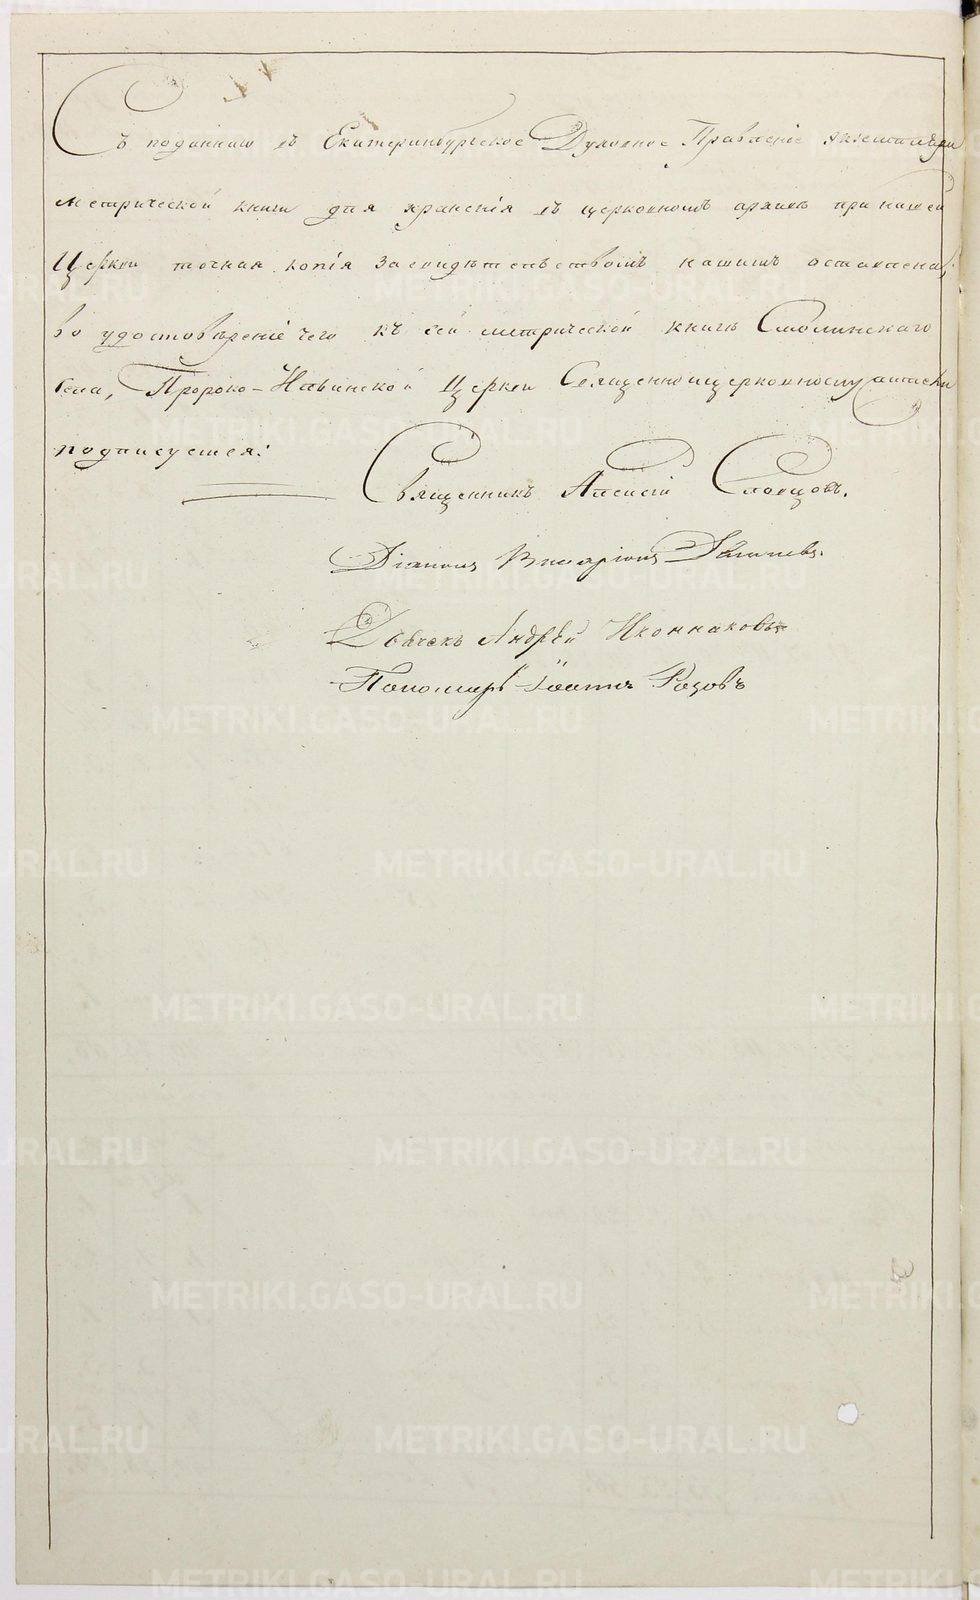 Съ поданнаго въ Екатеринбургское Духовное Правленіе экземпляра
метрической книги для храненія въ церковномъ архивѣ при нашей
Церкви точная копія засвидѣтельствомъ нашимъ оставлена,
во удостовѣреніе чего къ сей метрической книгѣ Смолинскаго
села, Пророко-Ильинской Церкви Священноцерковнослужители
подписуемся:
Священникъ Алексій Словцовъ.
Діаконъ
Дьячекъ Андрей Иконниковъ
Пономарь Іоаннъ Розовъ
METRIKI.GASO-URAL.RU